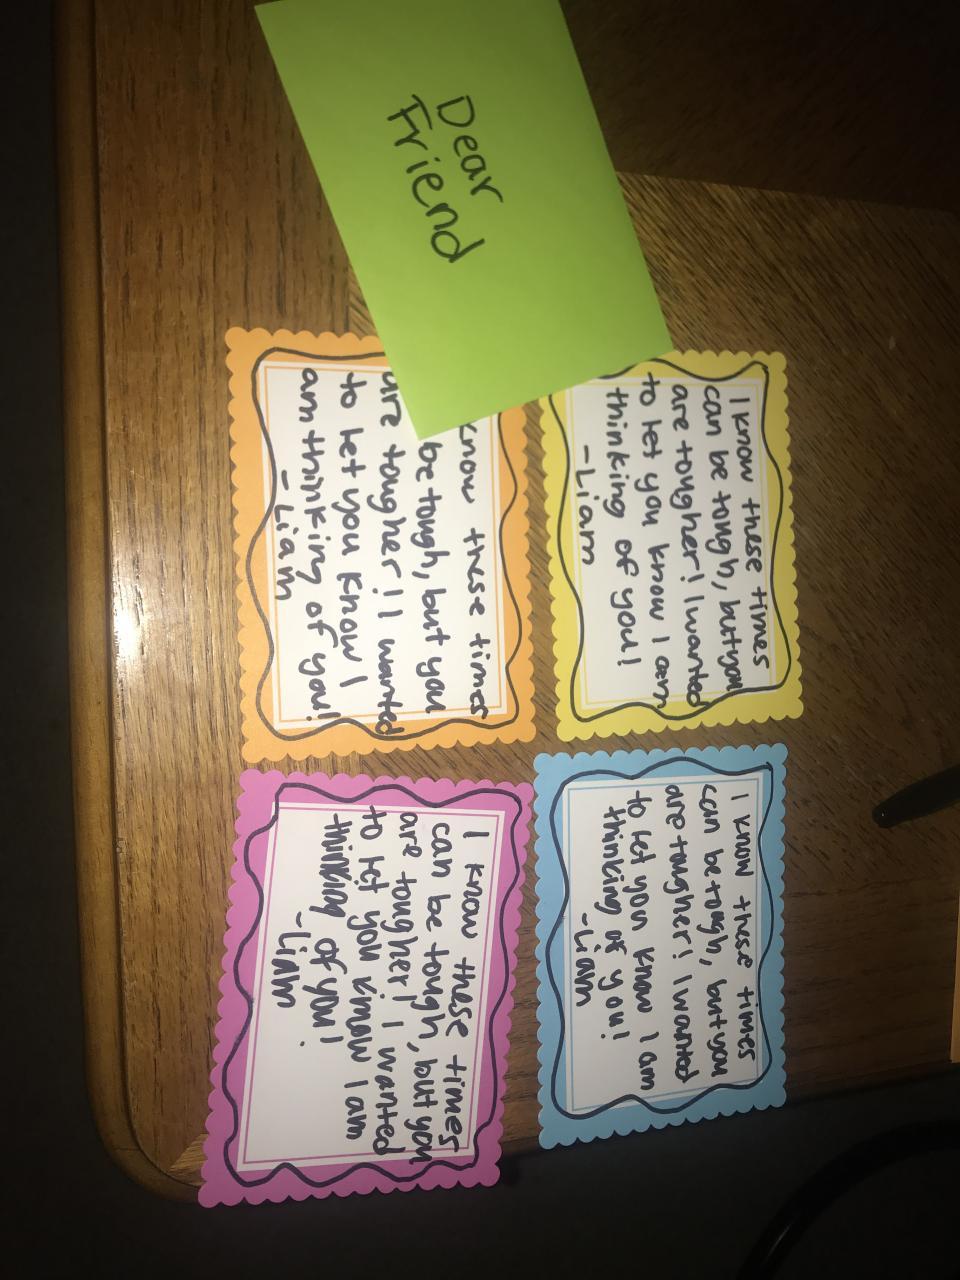 Dear
Friend
I know these times
can be tough, but you
are tougher! I wanted
to let you know I am
thinking of you!
-Liam
know these times
be tough, but you
are tougher! I wanted
to let you know I
am thinking of you!
- Liam
I know these times
can be tough, but you
are tougher! I wanted
to let you know I am
thinking of you!
-Liam
I know these times
can be tough, but you
are tougher! I wanted
to let you know I am
thinking of you!
-Liam